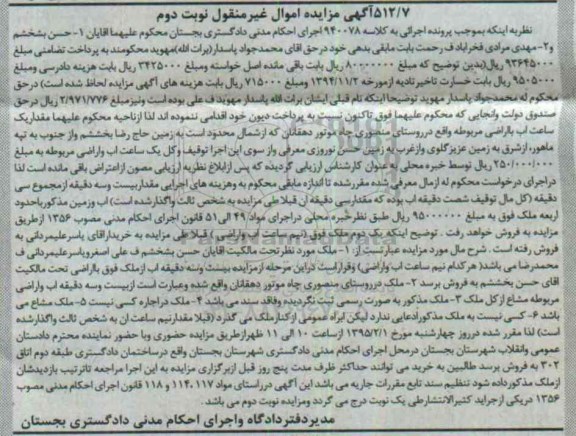 ۵۱۲/۷آگهی مزایده اموال غیرمنقول نوبت دوم
نظربه اینکه بموجب پرونده اجرائی به کلاسه ۹۴۰۰۷۸ اجرای احکام مدنی دادگستری بجستان محکوم علیهما اقایان ۱-حسن بشخشم
و۲-مهدی مرادی فخراباد ف رحمت بابت مابقی بدهی خود درحق اقای محمدجواد پاسدار(برات الله)مهوید محکومند به پرداخت تضامنی مبلغ
۹۳۶۴۵۰۰۰ ریال(بدین توضیح که مبلغ ۸۰۰۰۰۰۰۰ ریال بابت باقی مانده اصل خواسته ومبلغ ۳۴۲۵۰۰۰ ریال بابت هزینه دادرسی ومبلغ
۹۵۰۵۰۰۰ ریال بابت خسارت تاخیرتادیه ازمورخه ۱۳۹۴/۱۱/۲ ومبلغ ۷۱۵۰۰۰ ریال بابت هزینه های آگهی مزایده لحاظ شده است) درحق
محکوم له محمدجواد پاسدار مهوید توضیحا اینکه نام قبلی ایشان برات الله پاسدار مهوید ف علی بوده است ونیزمبلغ ۲/۹۷۱/۷۷۶ ریال درحق
صندوق دولت وانجایی که محکوم علیهما فوق تاکنون نسبت به پرداخت دیون خود اقدامی ننموده اند لذا ازناحیه محکوم علیهما مقداریک
ساعت اب باراضی مربوطه واقع درروستای منصوری چاه موتور دهقانان که ازشمال محدود است به زمین حاج رضا بشخشم واز جنوب به تپه
ماهور، ازشرق به زمین عزیز گلوی وازغرب به زمین حسن نوروزی معرفی واز سوی این اجرا توقیف وکل یک ساعت اب واراضی مربوطه به مبلغ
۲۵۰/۰۰۰/۰۰۰ ریال توسط خبره محلی به عنوان کارشناس ارزیابی گردیده که پس ازابلاغ نظریه ارزیابی مصون ازاعتراض باقی مانده است لذا
دراجرای درخواست محکوم له ازمال معرفی شده مقررشده تا اندازه مابقی محکوم به وهزینه های اجرایی مقداربیست وسه دقیقه ازمجموع سی
دقیقه (کل مال توقیف شصت دقیقه اب بوده که مقدارسی دقیقه آن قبلا طی مزایده به شخص ثالث واگذارشده است) اب وزمین مذکورباحدود
اربعه ملک فوق به مبلغ ۹۵۰۰۰۰۰۰ ریال طبق نظرخبره محلی دراجرای مواد ۴۹ الی ۵۱ قانون اجرای احکام مدنی مصوب ۱۳۵۶ ازطریق
مزایده به فروش خواهد رفت . توضیح اینکه یک دوم ملک فوق (نیم ساعت اب واراضی) قبلا طی مزایده به خریداراقای یاسرعلیمردانی به
فروش رفته است . شرح مال مورد مزایده عبارتست از: ۱-ملک مورد نظرتحت مالکیت اقایان حسن بشخشم ف علی اصغرویاسرعلیمردانی ف
محمدرضا می باشد( هرکدام نیم ساعت اب واراضی) وقراراست دراین مرحله ازمزایده بیست وسه دقیقه اب ازملک فوق بااراضی تحت مالکیت
اقای حسن بشخشم به فروش برسد ۲-ملک درروستای منصوری چاه موتور دهقانان واقع شده وعبارت است ازبیست وسه دقیقه اب واراضی
مربوطه مشاع ازکل ملک ۳-ملک مذکور به صورت رسمی ثبت نگردیده وفاقد سند می باشد ۴-ملک دراجاره کسی نیست ۵-ملک مشاع می
باشد ۶- کسی نیست به ملک مذکورادعایی ندارد لیکن ابراه عمومی ازکنارملک می گذرد (قبلا مقدارنیم ساعت ان به شخص ثالث واگذارشده
است) لذا مقرر شده درروز چهارشنبه مورخ ۱۳۹۵/۲/۱ ازساعت ۱۰ الی ۱۱ ظهرازطریق مزایده حضوری وبا حضور نماینده محترم دادستان
عمومی وانقلاب شهرستان بجستان درمحل اجرای احکام مدنی دادگستری شهرستان بجستان واقع درساختمان دادگستری طبقه دوم اتاق
۳۰۲ به فروش برسد طالبین به خرید می توانند حداکثر ظرف مدت پنج روز قبل ازبرگزاری مزایده به این اجرا مراجعه تاترتیب بازدیدشان
ازملک مذکورداده شود تنظیم سند تابع مقررات جاریه می باشد این آگهی درراستای مواد ۱۱۷ ،۱۱۴ و ۱۱۸ قانون اجرای احکام مدنی مصوب
۱۳۵۶ دریکی ازجراید کثیرالانتشارطی یک نوبت درج می گردد ومزایده نوبت دوم می باشد.
مدیردفتردادگاه واجرای احکام مدنی دادگستری بجستان